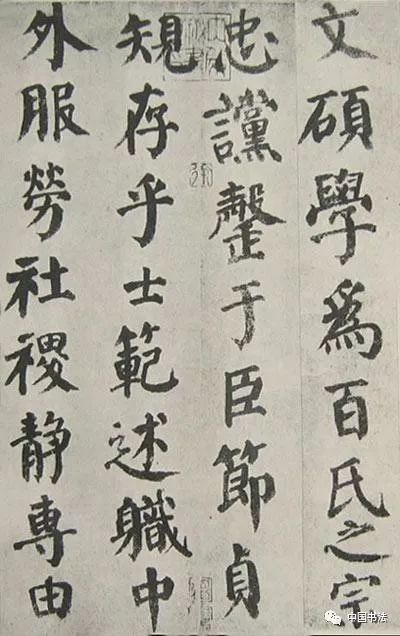 文碩學爲百氏之宗
忠讜罄于臣節貞
䂓存乎士範述職中
外服勞社稷静專由
中国书法